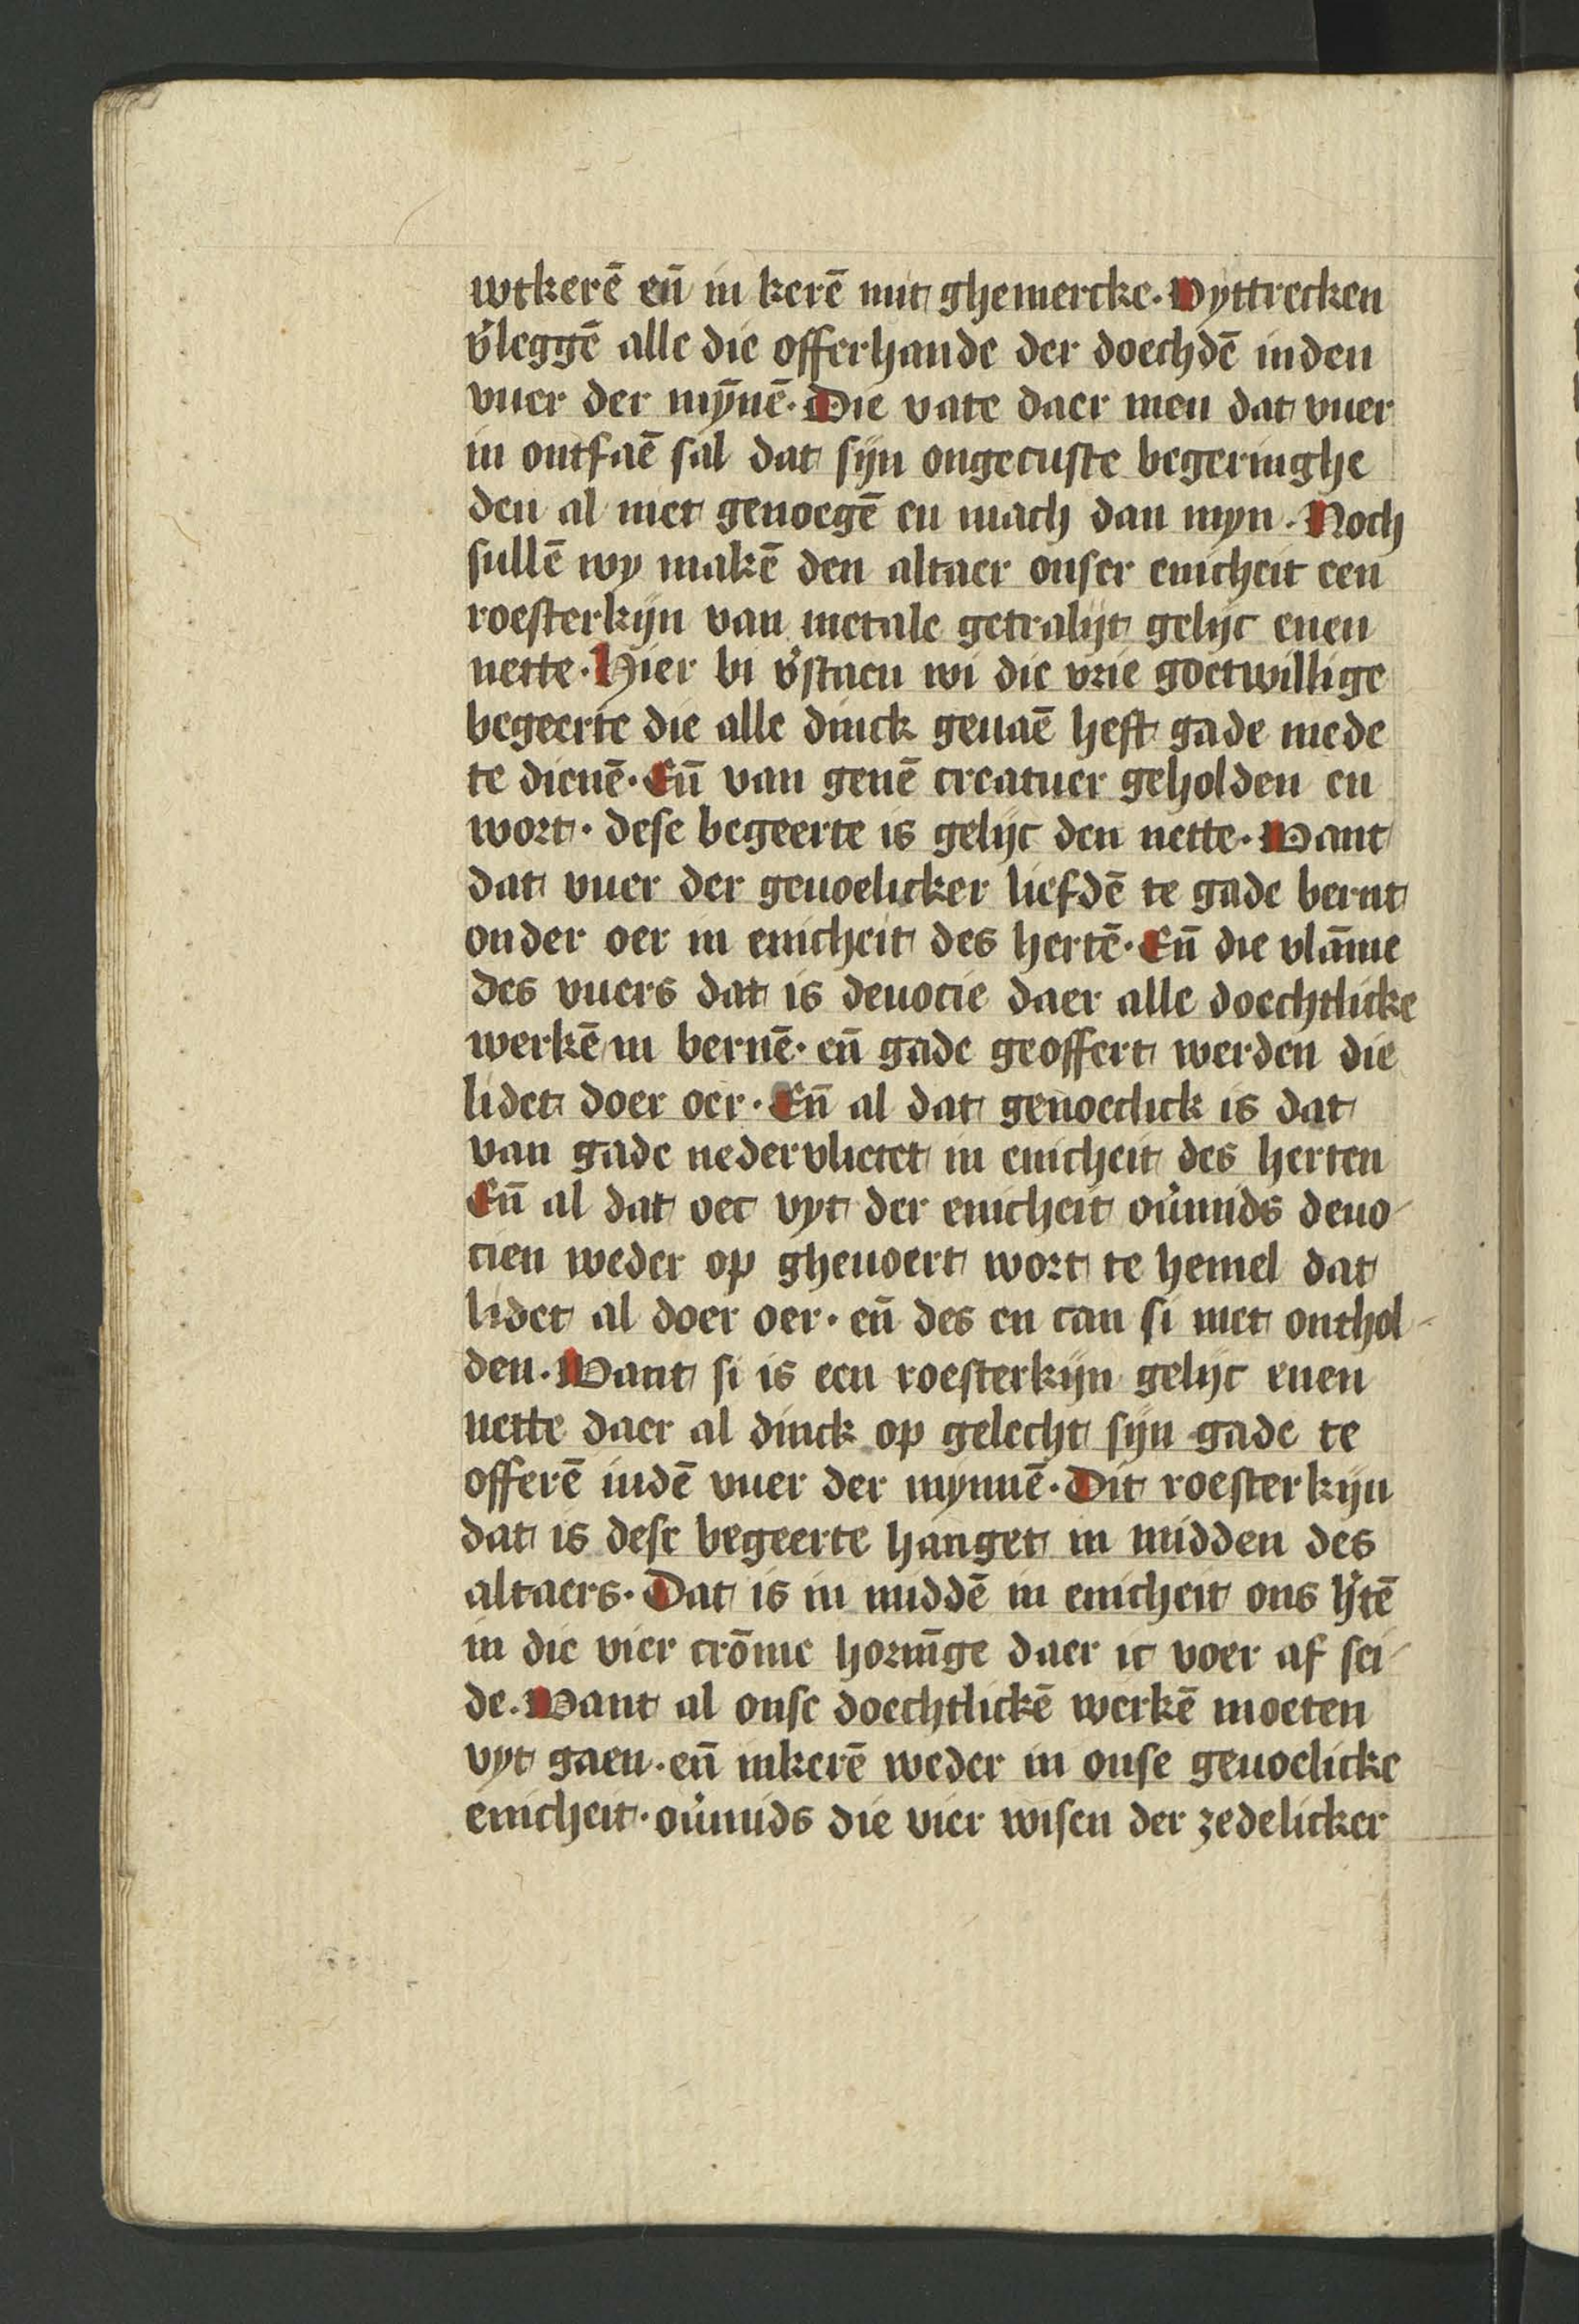 wtkerē eñ in kerē mit ghemercke. Wyttrecken
v̾leggē alle die offerhande der doechdē inden
vuer der mȳnē. Die vate daer men dat vuer
in ontfaē sal dat sijn ongecuste begeringhe
den al niet genoegē en mach dan myn. Noch
sullē wy makē den altaer onser enicheit een
roesterkijn van metale getralijt gelijc enen
nette. Hier bi v̾staen wi die vrie goetwillige
begeerte die alle dinck geuaē heft gade mede
te dienē. Eñ van genē creatuer geholden en
wort. dese begeerte is gelijc den nette. Want
dat vuer der geuoelicker liefdē te gade bernt
onder oer in enicheit des hertē. Eñ die vlāme
des vuers dat is deuocie daer alle doechtlicke
werkē in bernē. eñ gade geoffert werden die
lidet doer oer. Eñ al dat genoechlick is dat
van gade nedervlietet in enicheit des herten
Eñ al dat oec vyt der enicheit ou̾mids deuo
cien weder op gheuoert wort te hemel dat
lidet al doer oer. eñ des en can si niet onthol
den. Want si is een roesterkijn gelijc enen
nette daer al dinck op gelecht sijn gade te
offerē indē vuer der mynnē. Dit roesterkijn
dat is dese begeerte hanget in midden des
altaers. Dat is in middē in enicheit ons h̾tē
in die vier crōme hornīge daer ic voer af sei
de. Want al onse doechtlickē werkē moeten
vyt gaen. eñ inkerē weder in onse geuoelicke
enicheit. ou̾mids die vier wisen der zedelicker